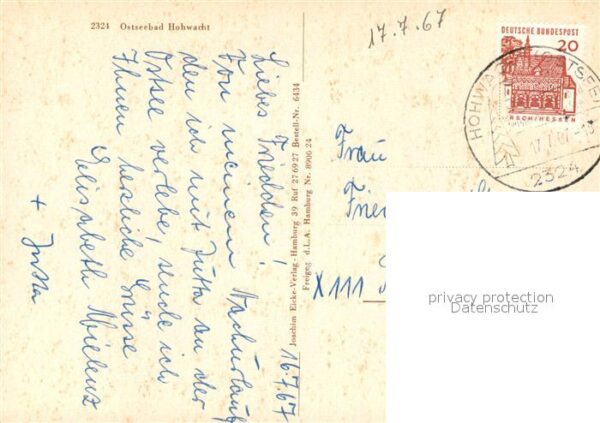 2324 Ostseebad Hohwacht
17.7.67
DEUTSCHE BUNDESPOST
20
LORSCH/HESSEN
HOHWACHT (OSTSEE)
17.7.67
2324
16.7.67
Liebes Friedchen!
Von meinem Nachurlaub
den ich mit Jutta an der
Ostsee verlebe, sende ich
Ihnen herzliche Grüsse
Elisabeth Mielenz
+ Jutta
Joachim Eicke-Verlag · Hamburg 39 Ruf 276927 Bestell-Nr. 6434
Freigeg. d.L.A. Hamburg Nr. 8906 24
Frau
X 111
privacy protection
Datenschutz